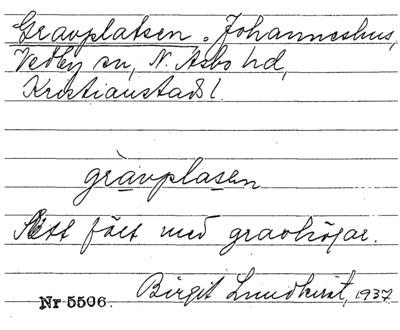 Gravplatsen. Johanneshus,
Vedby sn, N. Åsbo hd,
Kristianstads l.
gravplasen
Ett fält med gravhögar.
Birgit Lundkvist, 1937
Nr 5506.